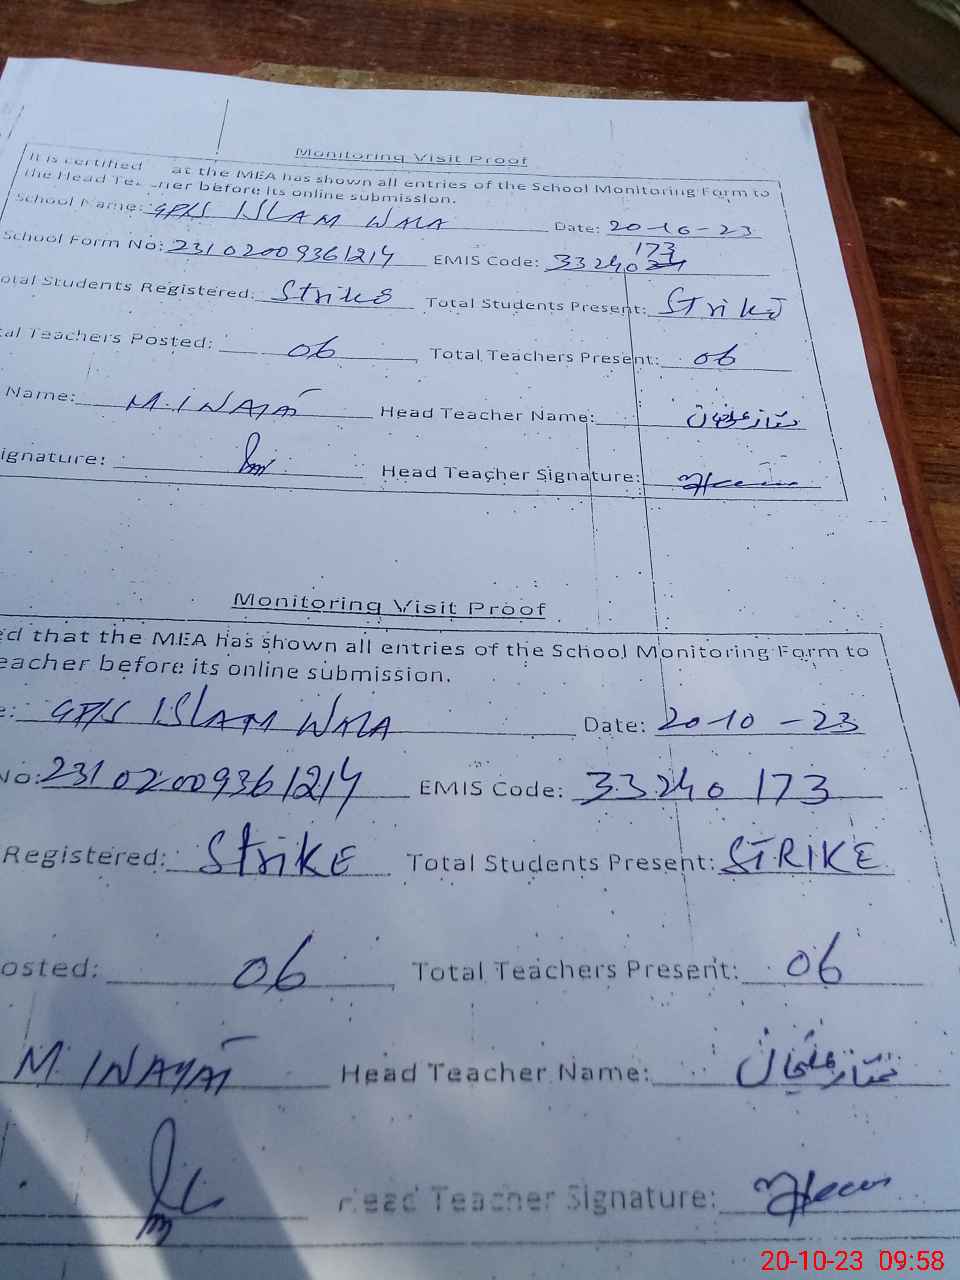 Monitoring Visit Proof
It is certified at the MEA has shown all entries of the School Monitoring Form to
the Head Te. ..her before its online submission.
School Name: GPS ISLAM WALA Date: 20-10-23
School Form No: 23102009361214 EMIS Code: 33240 173
otal Students Registered: Strike Total Students Present: Strike
tal Teachers Posted: 06 Total Teachers Present: 06
Name: M. INAYAT Head Teacher Name: ممتاز علی خان
ignature: Head Teacher Signature:
Monitoring Visit Proof
ed that the MEA has shown all entries of the School Monitoring Form to
eacher before its online submission.
e: GPS ISLAM WALA Date: 20-10-23
No: 23102009361214 EMIS Code: 33240173
Registered: StrikE Total Students Present: STRIKE
osted: 06 Total Teachers Present: 06
M. INAYAT Head Teacher Name: ممتاز علی خان
Head Teacher Signature:
20-10-23 09:58